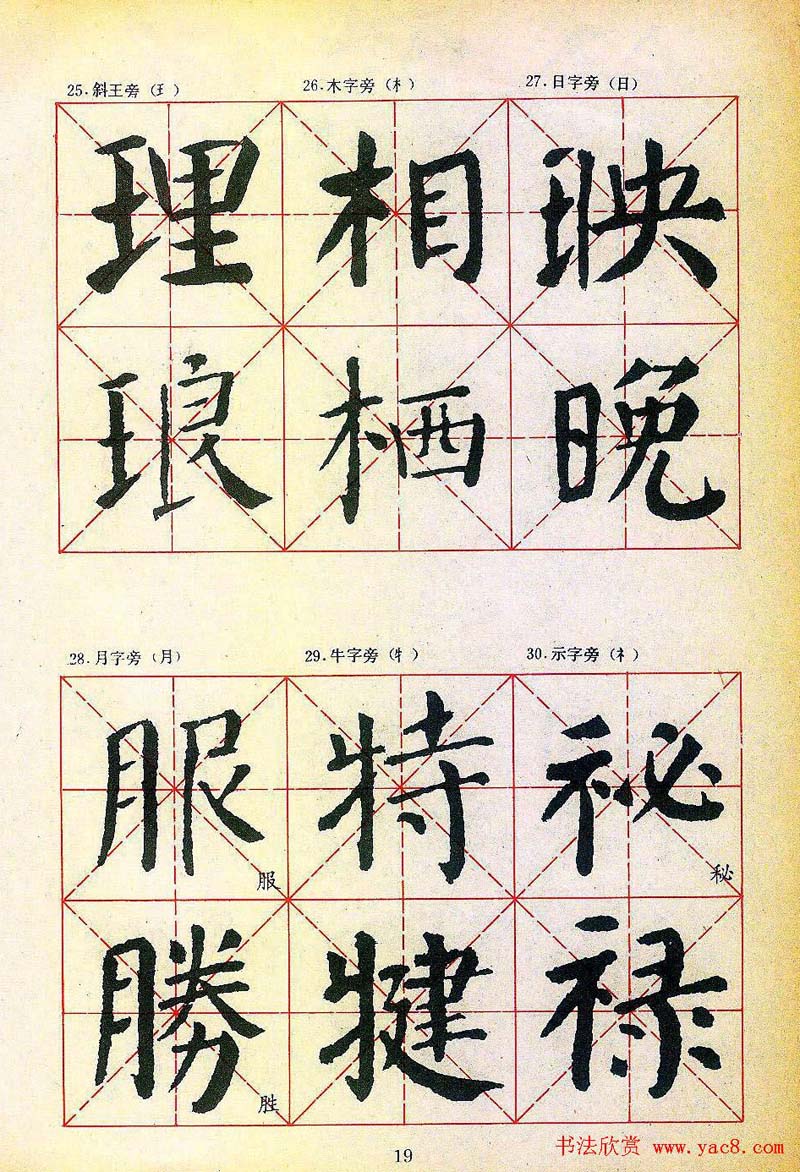 25.斜王旁（王） 26.木字旁（木） 27.日字旁（日）
理 相 映
琅 栖 晚
28.月字旁（月） 29.牛字旁（牜） 30.示字旁（礻）
服 特 祕
服 秘
勝 犍 禄
胜
19
书法欣赏 www.yac8.com